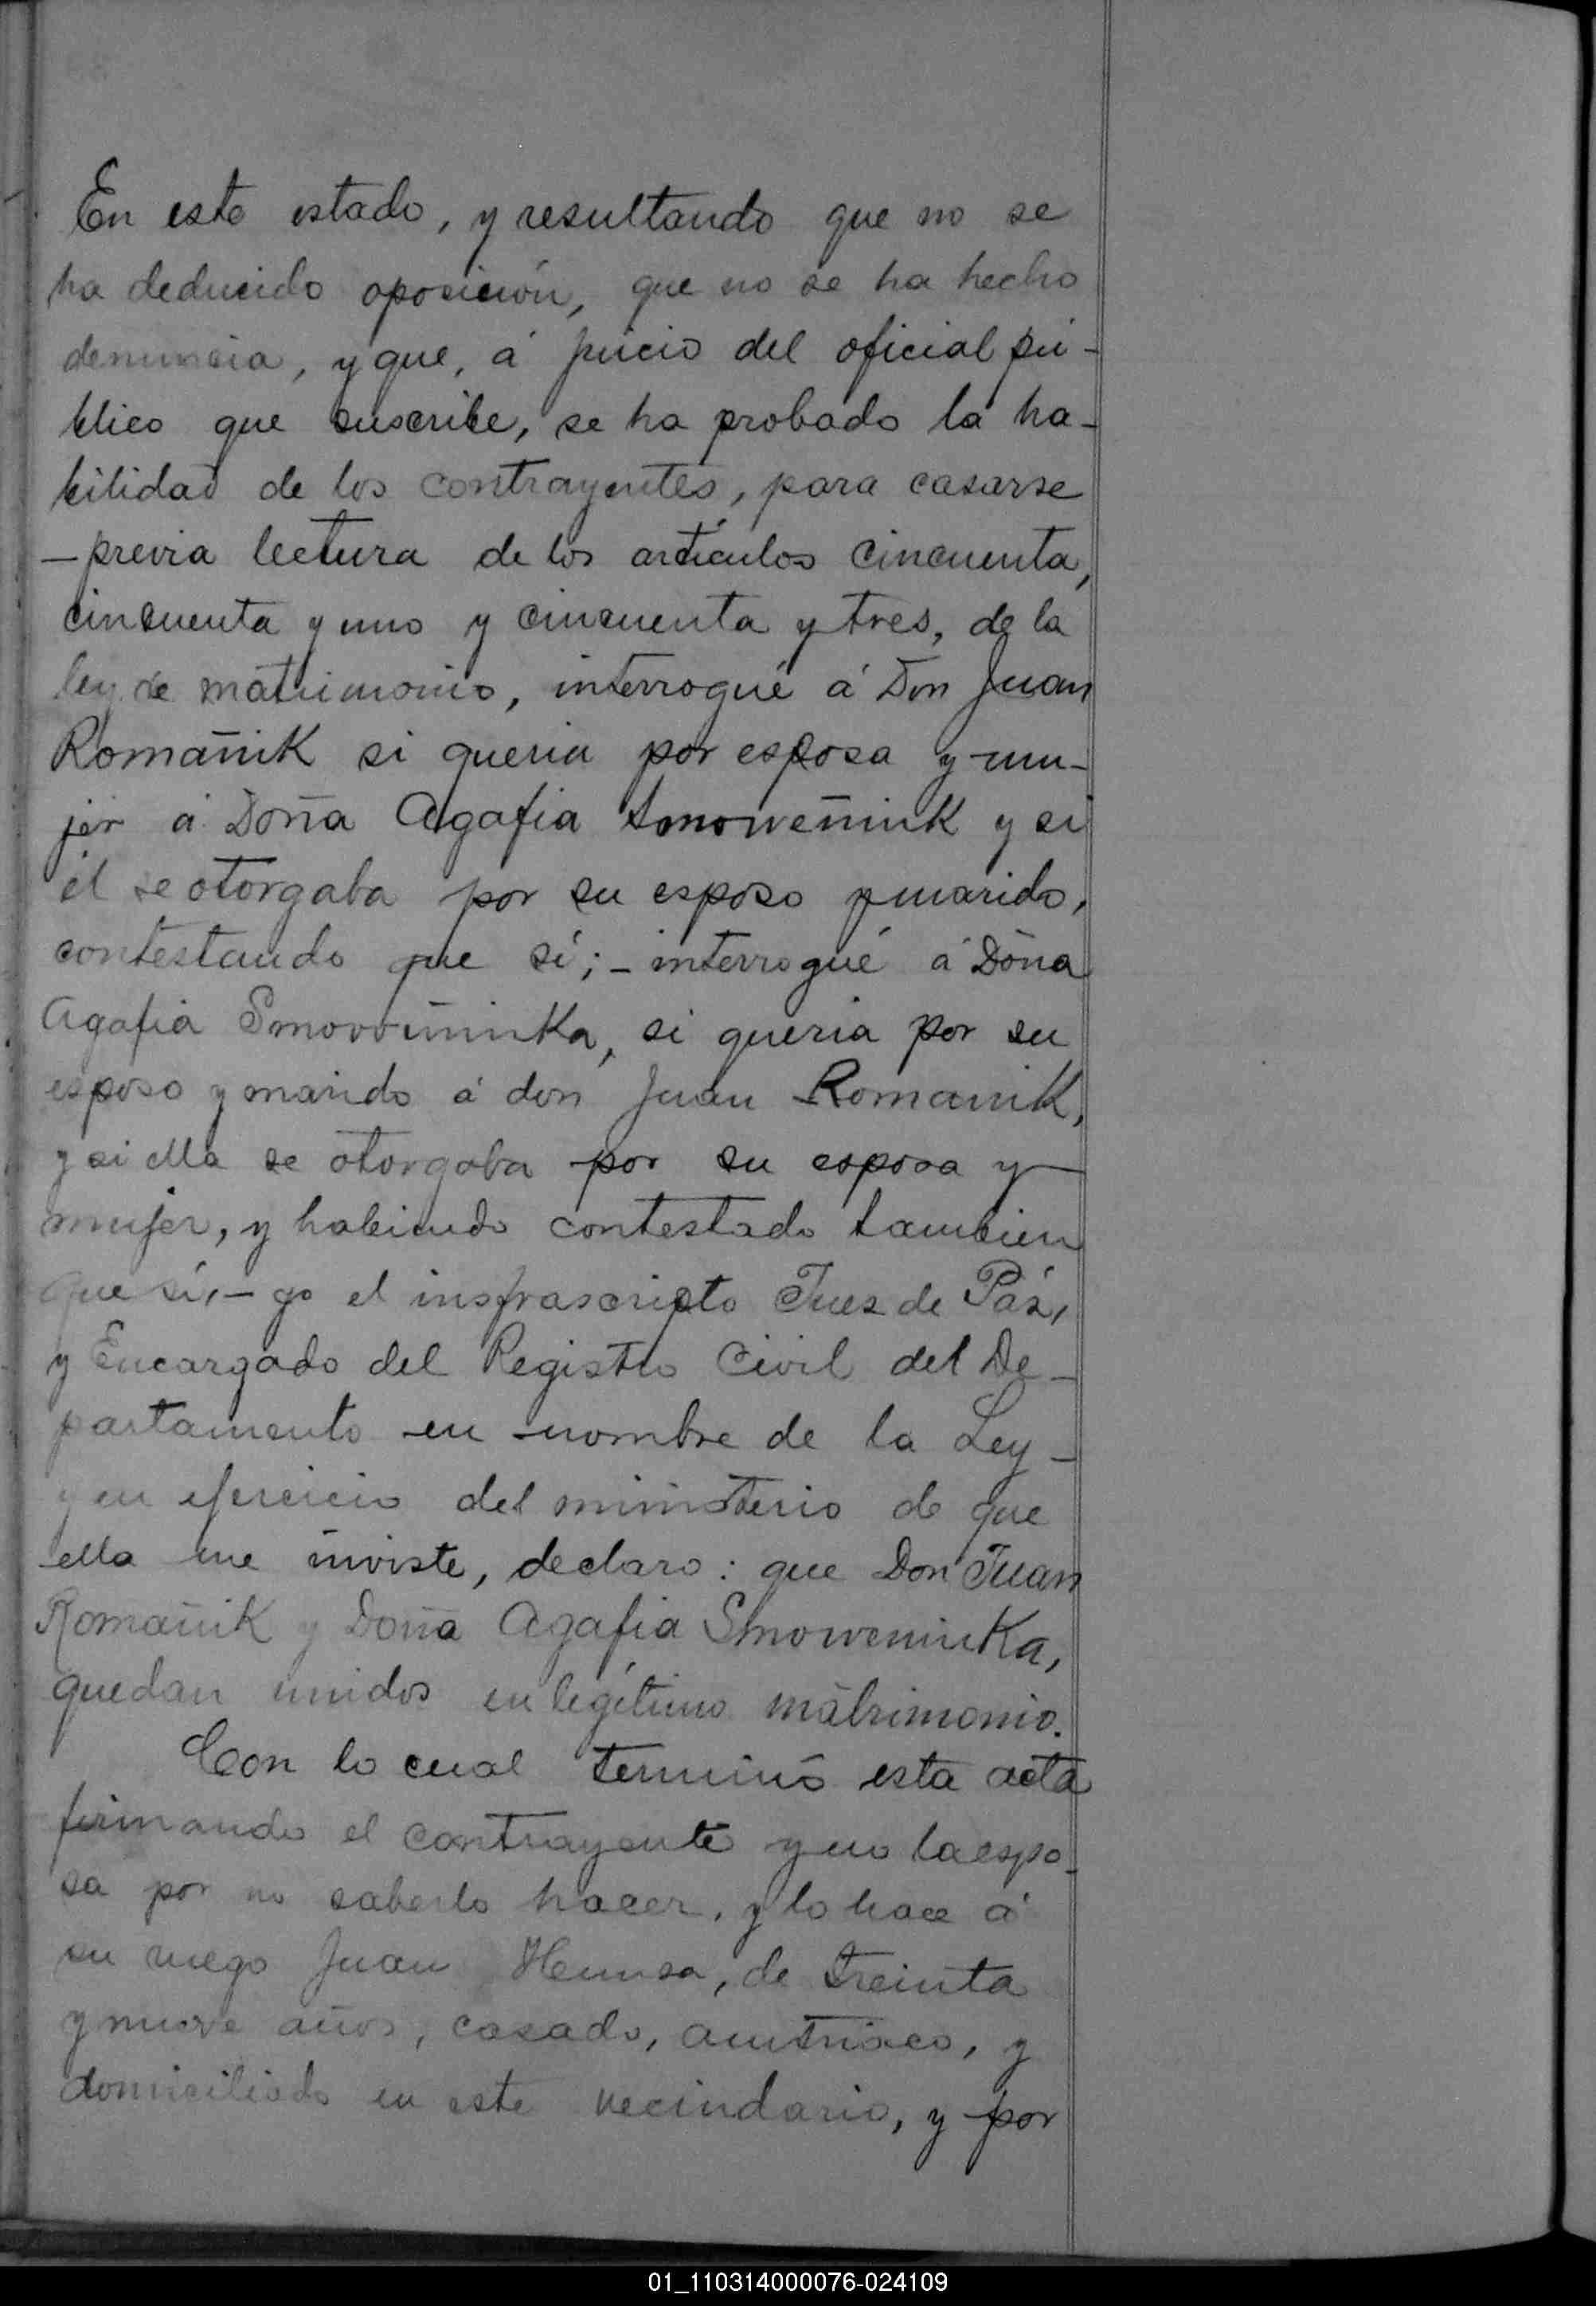 En este estado, y resultando que no se
ha deducido oposición, que no se ha hecho
denuncia, y que, á juicio del oficial pú-
blico que suscribe, se ha probado la ha-
bilidad de los contrayentes, para casarse
—previa lectura de los artículos cincuenta,
cincuenta y uno y cincuenta y tres, de la
ley de matrimonio, interrogué á Don Juan
Romañik si queria por esposa y mu-
jer á Doña Agafia Smoweñink y si
él se otorgaba por su esposo y marido,
contestando que sí; - interrogué á Doña
Agafia Smovoñinka, si queria por su
esposo y marido á don Juan Romanik,
y si ella se otorgaba por su esposa y
mujer, y habiendo contestado tambien
que sí, - yo el insfrascripto Juez de Páz,
y Encargado del Registro Civil del De-
partamento en nombre de la Ley -
y en ejercicio del ministerio de que
ella me inviste, declaro: que Don Juan
Romañik y Doña Agafia Smoweninka,
quedan unidos en legítimo matrimonio.
Con lo cual terminó esta acta
firmando el contrayente y no la espo-
sa por no saberlo hacer, y lo hace á
su ruego Juan de treinta
y nueve años, casado, austriaco, y
domiciliado en este vecindario, y por
01_110314000076-024109